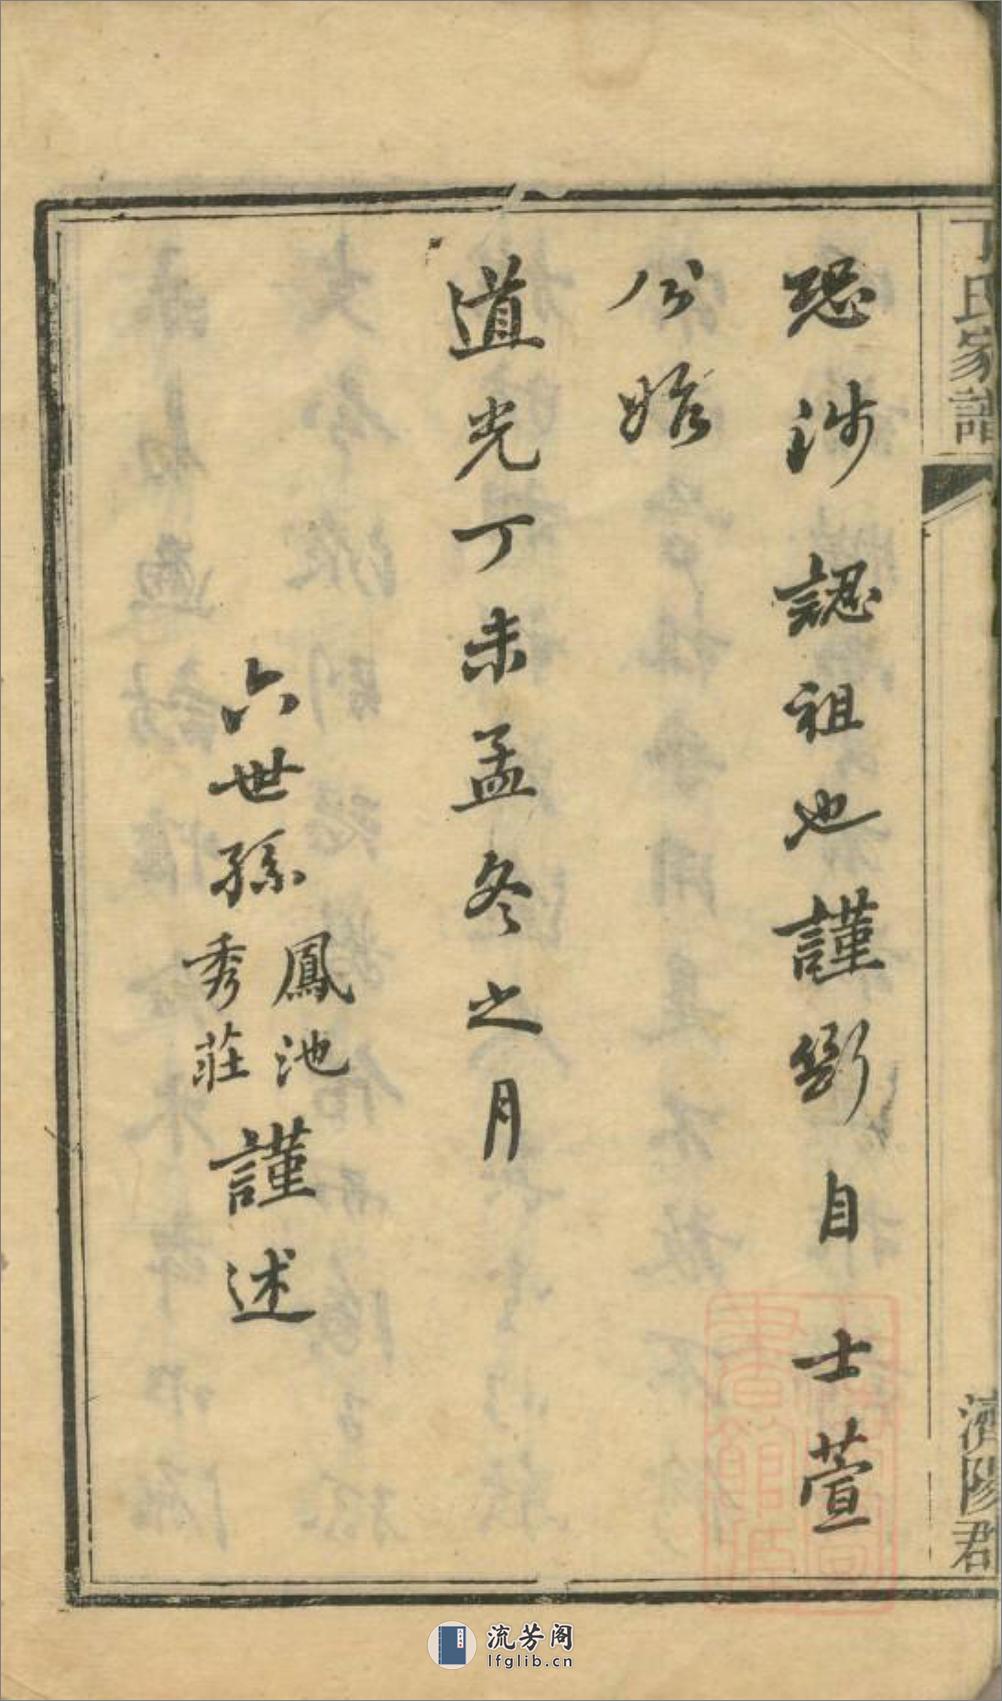 丁氏家譜
濟陽郡
恐涉認祖也謹衍自士萱
公始
道光丁未孟冬之月
六世孫
鳳池
秀莊
謹述
流芳阁
lfglib.cn